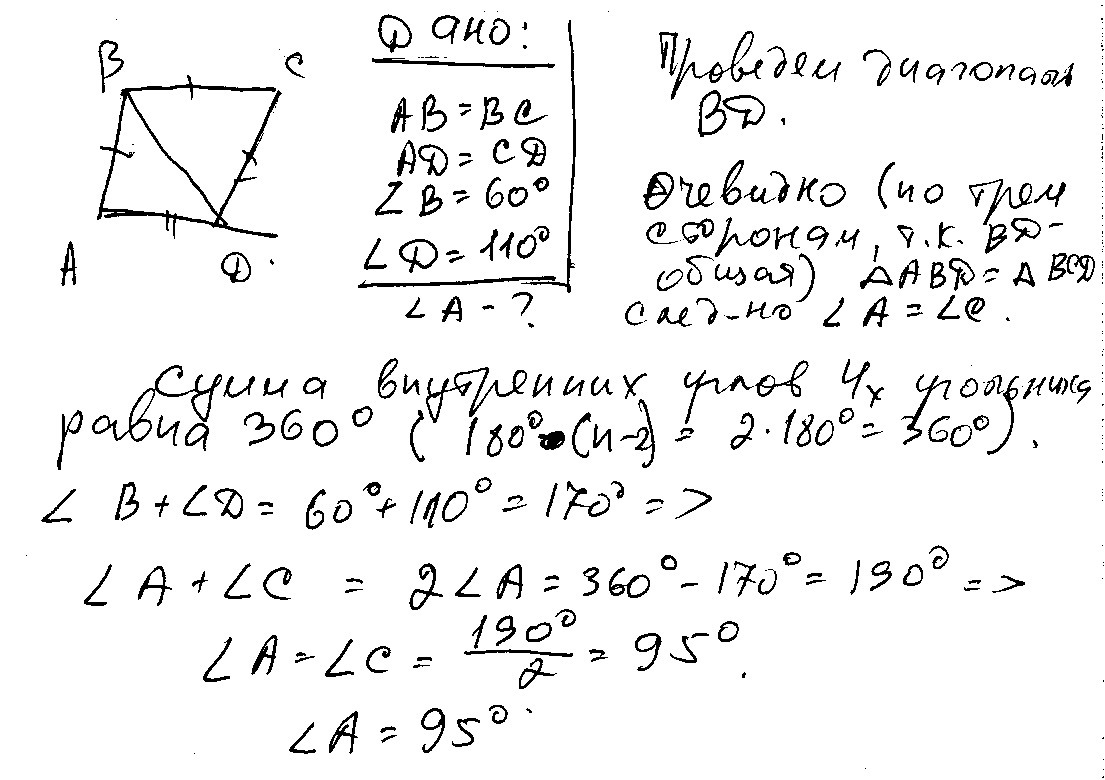 B C
A D.
Дано:
AB = BC
AD = CD
∠ B = 60°
∠ D = 110°
∠ A - ?
Проведем диагональ
BD.
Очевидно (по трем
сторонам, т.к. BD-
общая) Δ ABD = Δ BCD
след-но ∠ A = ∠C.
Сумма внутренних углов 4х угольника
равна 360° ( 180°·(n-2) = 2·180° = 360°).
∠ B + ∠D = 60° + 110° = 170° =>
∠ A + ∠C = 2∠A = 360° - 170° = 190° =>
∠A = ∠C = 190°/2 = 95°.
∠A = 95°.